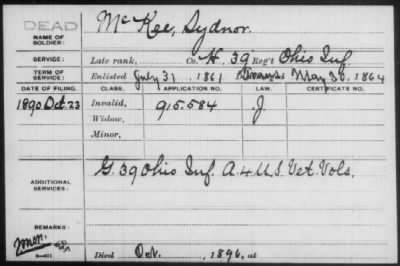 DEAD
NAME OF SOLDIER: McKee, Sydnor.
SERVICE: Late rank, Co. H, 39 Reg't Ohio Inf.
TERM OF SERVICE: Enlisted July 31, 1861 May 30, 1864
DATE OF FILING. CLASS. APPLICATION NO. LAW. CERTIFICATE NO.
1890 Oct. 23 Invalid, 915.584 J.
Widow,
Minor,
ADDITIONAL SERVICES: G. 39 Ohio Inf. A. 4 U.S. Vet. Vols.
REMARKS:
Died Oct. , 1896, at